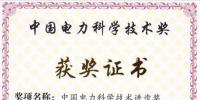 中国电力科学技术奖
获奖证书
奖项名称：中国电力科学技术进步奖